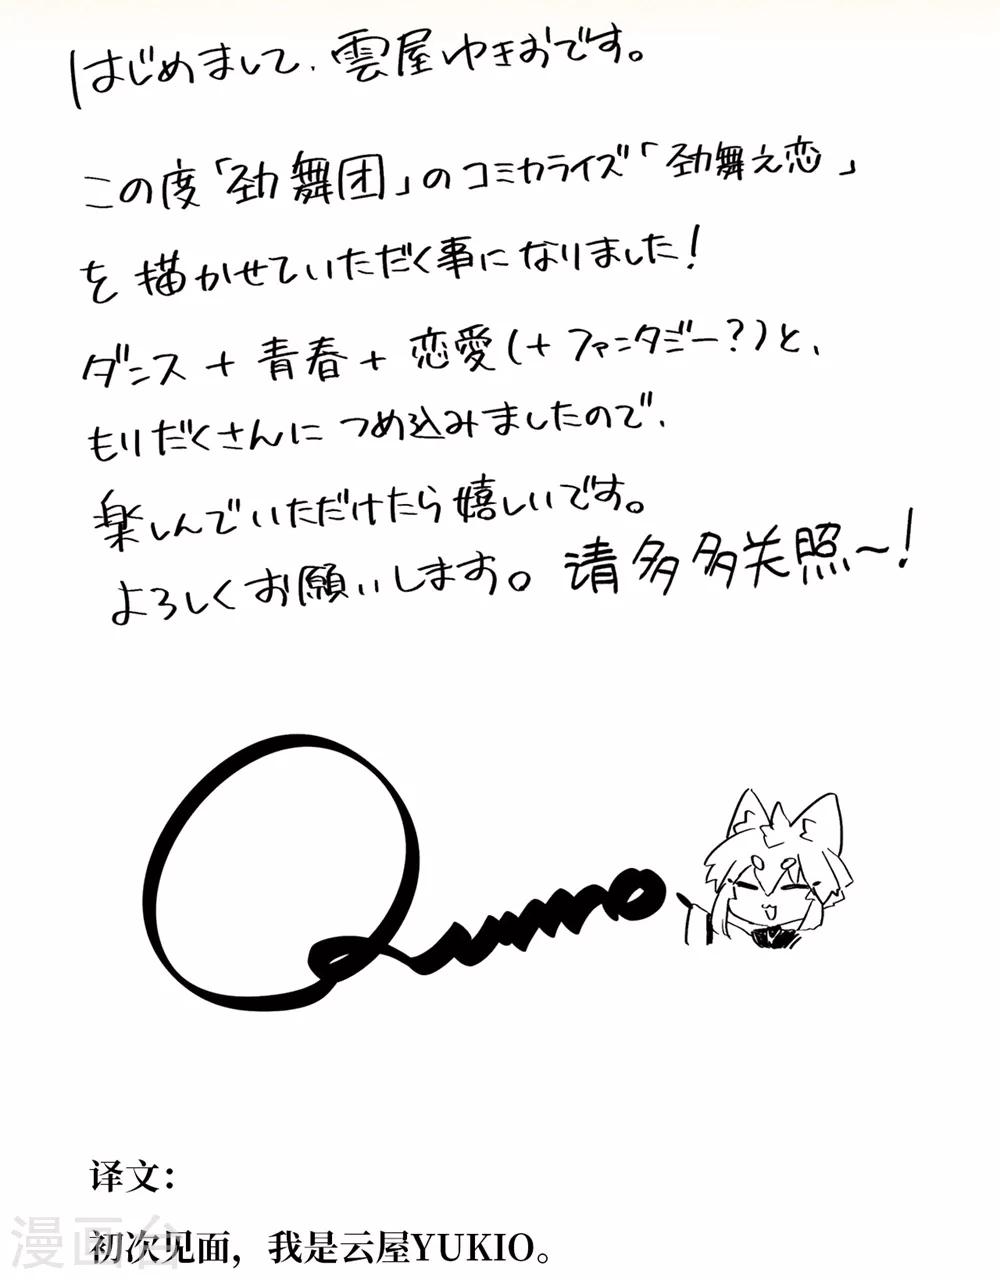 はじめまして、雲屋ゆきおです。
この度「劲舞团」のコミカライズ「劲舞之恋」
を描かせていただく事になりました!
ダンス+青春+恋愛(+ファンタジー?)と、
もりだくさんにつめ込みましたので、
楽しんでいただけたら嬉しいです。
よろしくお願いします。请多多关照～!
译文:
漫画台
初次见面，我是云屋YUKIO。